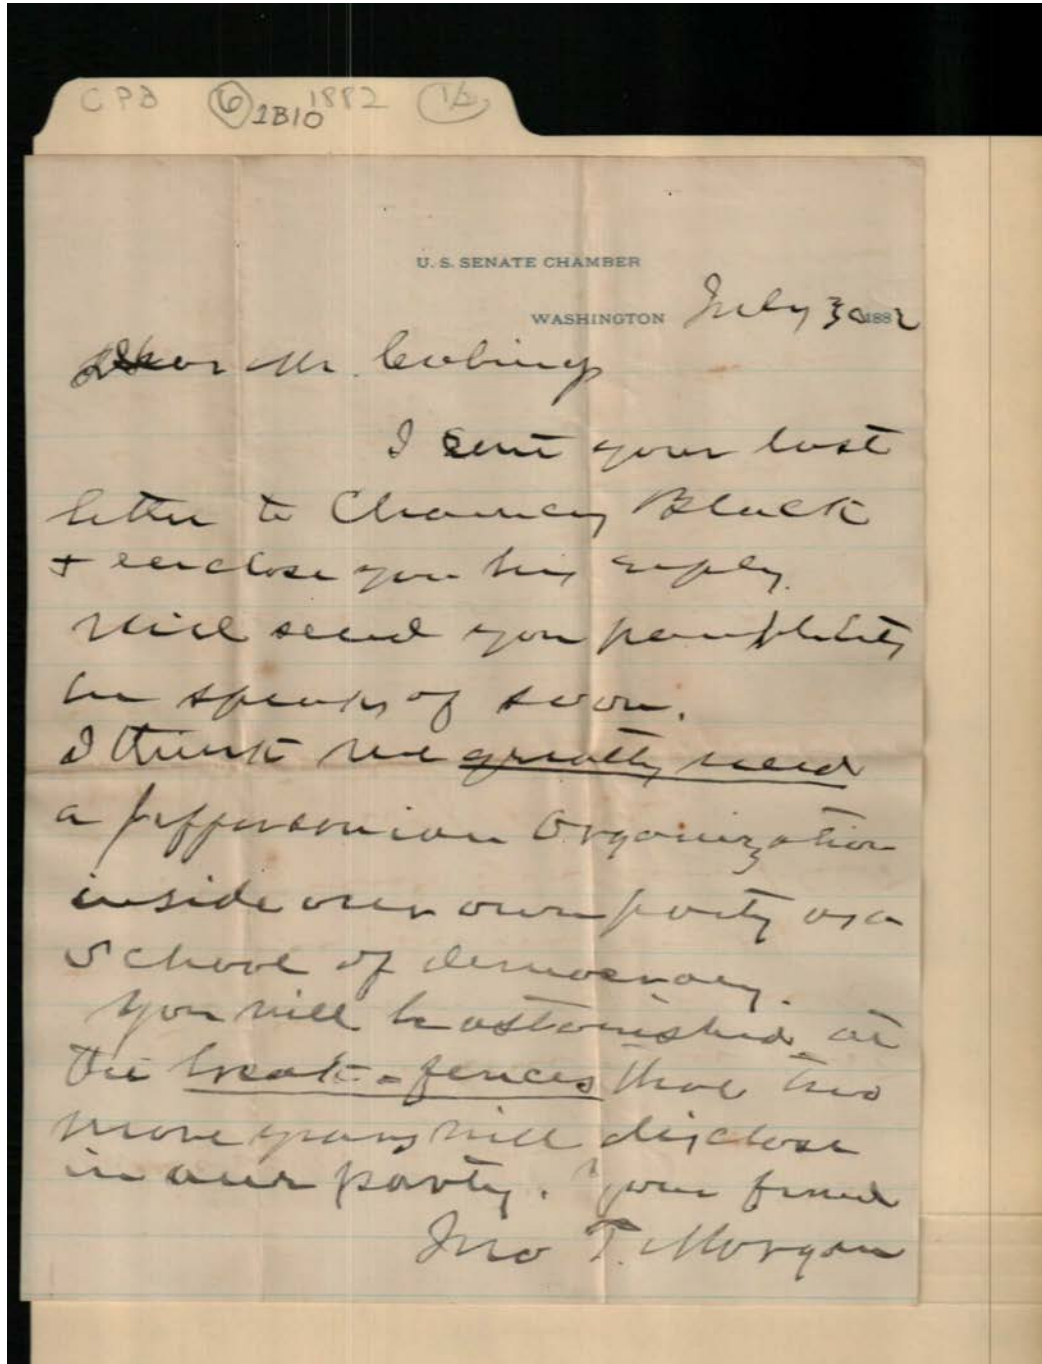 CPB 6 1B10 1882 1/2
U. S. SENATE CHAMBER
WASHINGTON July 30 1882
Dear Mr.
I sent your last
letter to Chauncey Black
+ enclose you his reply.
Will send you pamphlets
he speaks of soon.
I think we greatly need
a Jeffersonian Organization
inside our own party as a
School of democracy.
You will be astonished at
the break-fences that two
more years will disclose
in our party. Your friend
Jno T. Morgan